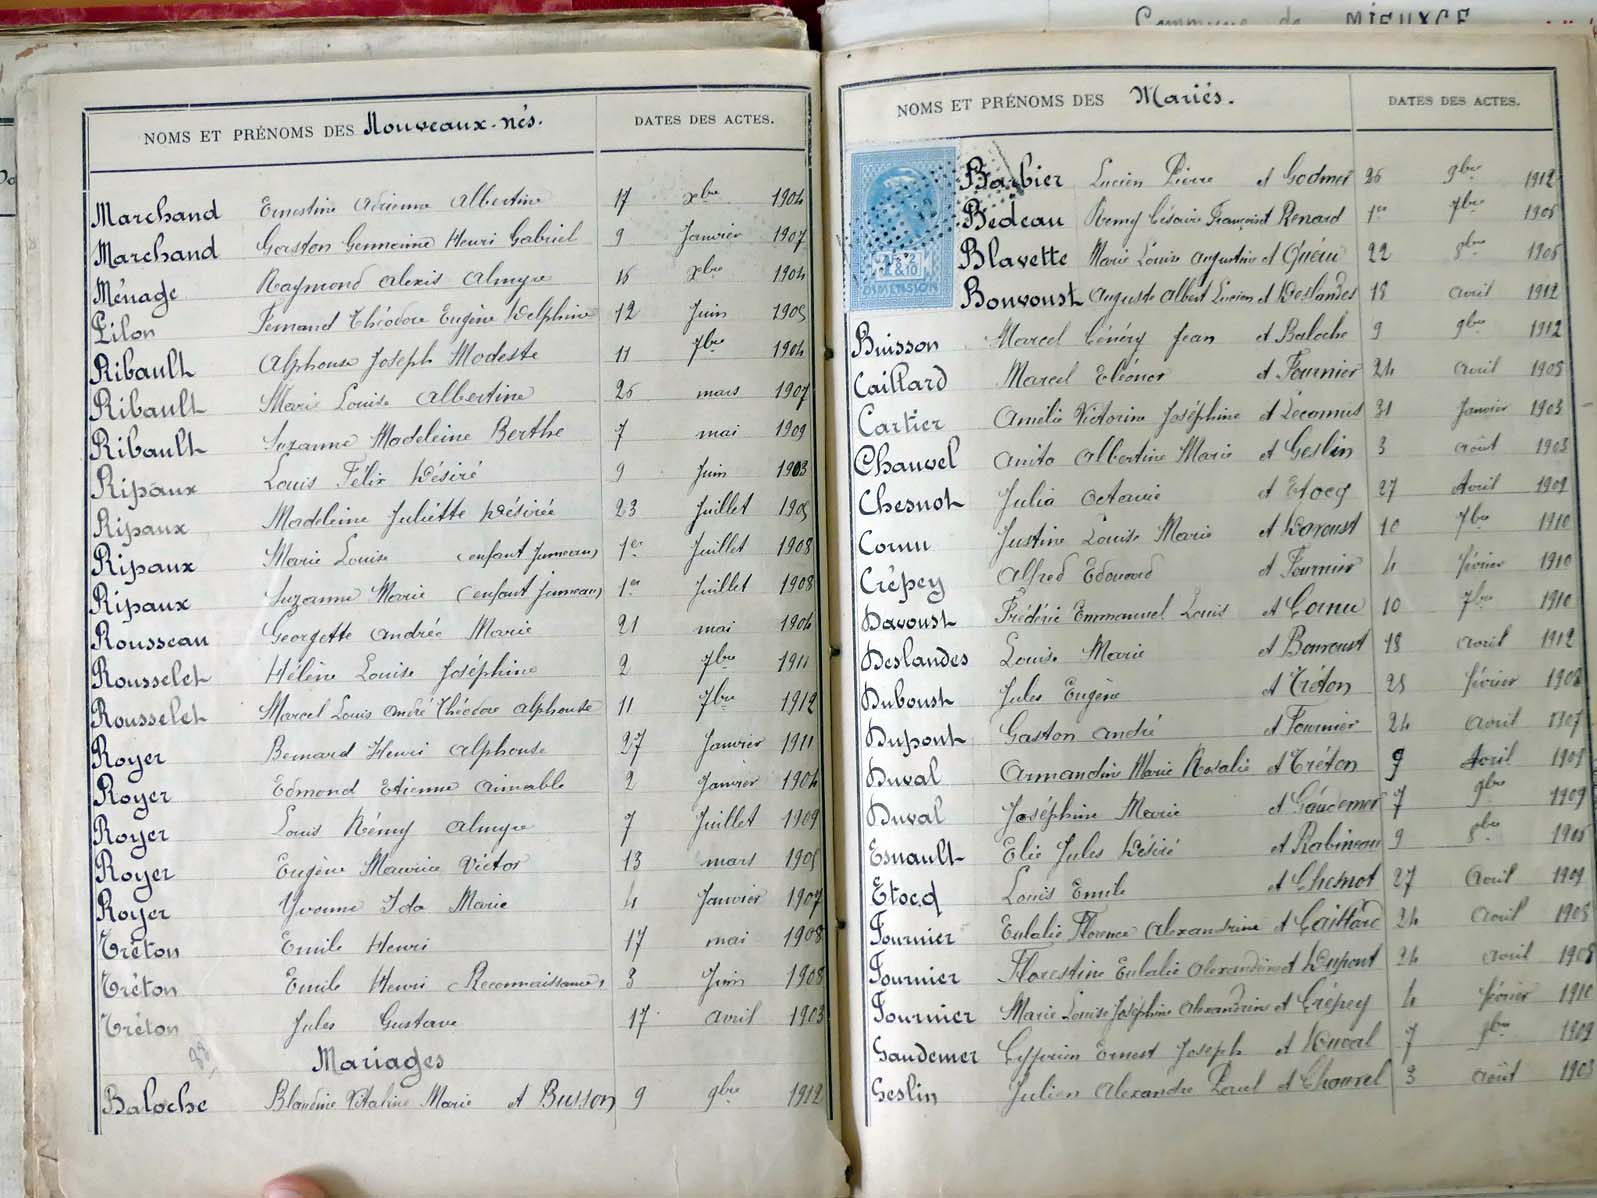 Commune de MIEUXCE
NOMS ET PRÉNOMS DES Nouveaux-nés. DATES DES ACTES.
Marchand Ernestine Adrienne Albertine 17 xbre 1904
Marchand Gaston Germaine Henri Gabriel 9 Janvier 1907
Ménage Raymond Alexis Almyre 16 xbre 1904
Pilon Fernand Théodore Eugène Delphine 12 Juin 1905
Ribault Alphonse Joseph Modeste 11 7bre 1904
Ribault Marie Louise Albertine 26 mars 1907
Ribault Suzanne Madeleine Berthe 7 mai 1909
Ripaux Louis Félix Désiré 9 Juin 1903
Ripaux Madeleine Juliette Désirée 23 Juillet 1905
Ripaux Marie Louise (enfant Jumeau) 1er Juillet 1908
Ripaux Suzanne Marie (enfant Jumeau) 1er Juillet 1908
Rousseau Georgette Andrée Marie 21 mai 1904
Rousselet Hélène Louise Joséphine 2 7bre 1911
Rousselet Marcel Louis André Théodore Alphonse 11 7bre 1912
Royer Bernard Henri Alphonse 27 Janvier 1911
Royer Edmond Etienne Aimable 2 Janvier 1904
Royer Louis Rémy Almyre 7 Juillet 1909
Royer Eugène Maurice Victor 13 mars 1905
Royer Yvonne Ida Marie 4 Janvier 1907
Tréton Emile Henri 17 mai 1908
Tréton Emile Henri (Reconnaissance) 3 Juin 1908
Tréton Jules Gustave 17 avril 1903
Mariages
Baloche Blandine Vitaline Marie et Busson 9 9bre 1912
NOMS ET PRÉNOMS DES Mariés. DATES DES ACTES.
2/10
DIMENSION
Barbier Lucien Pierre et Godmer 26 9bre 1912
Bedeau Rémy Césaire François et Renard 1er 7bre 1906
Blavette Marie Louise Augustine et Quéru 22 8bre 1906
Bonvoust Auguste Albert Lucien et Deslandes 18 avril 1912
Buisson Marcel Cénéry Jean et Baloche 9 9bre 1912
Caillard Marcel Eléonor et Fournier 24 avril 1908
Cartier Amélie Victorine Joséphine et Lecomus 31 Janvier 1903
Chauvel Anita Albertine Marie et Geslin 3 août 1903
Chesnot Julia Octavie et Etocq 27 Avril 1909
Cornu Justine Louise Marie et Davoust 10 7bre 1910
Crépey Alfred Edouard et Fournier 4 février 1910
Davoust Frédéric Emmanuel Louis et Cornu 10 7bre 1910
Deslandes Louise Marie et Bonvoust 18 avril 1912
Duboust Jules Eugène et Tréton 25 février 1908
Dupont Gaston André et Fournier 24 avril 1907
Duval Armandine Marie Rosalie et Tréton 9 Avril 1909
Duval Joséphine Marie et Gaudemer 7 9bre 1909
Esnault Elie Jules Désiré et Rabineau 9 8bre 1906
Etocq Louis Emile et Chesnot 27 Avril 1909
Fournier Eulalie Florence Alexandrine et Caillard 24 avril 1908
Fournier Florestine Eulalie Alexandrine et Dupont 24 avril 1908
Fournier Marie Louise Joséphine Alexandrine et Crépey 4 février 1910
Gaudemer Cyprien Ernest Joseph et Duval 7 9bre 1909
Geslin Julien Alexandre Paul et Chauvel 3 août 1903